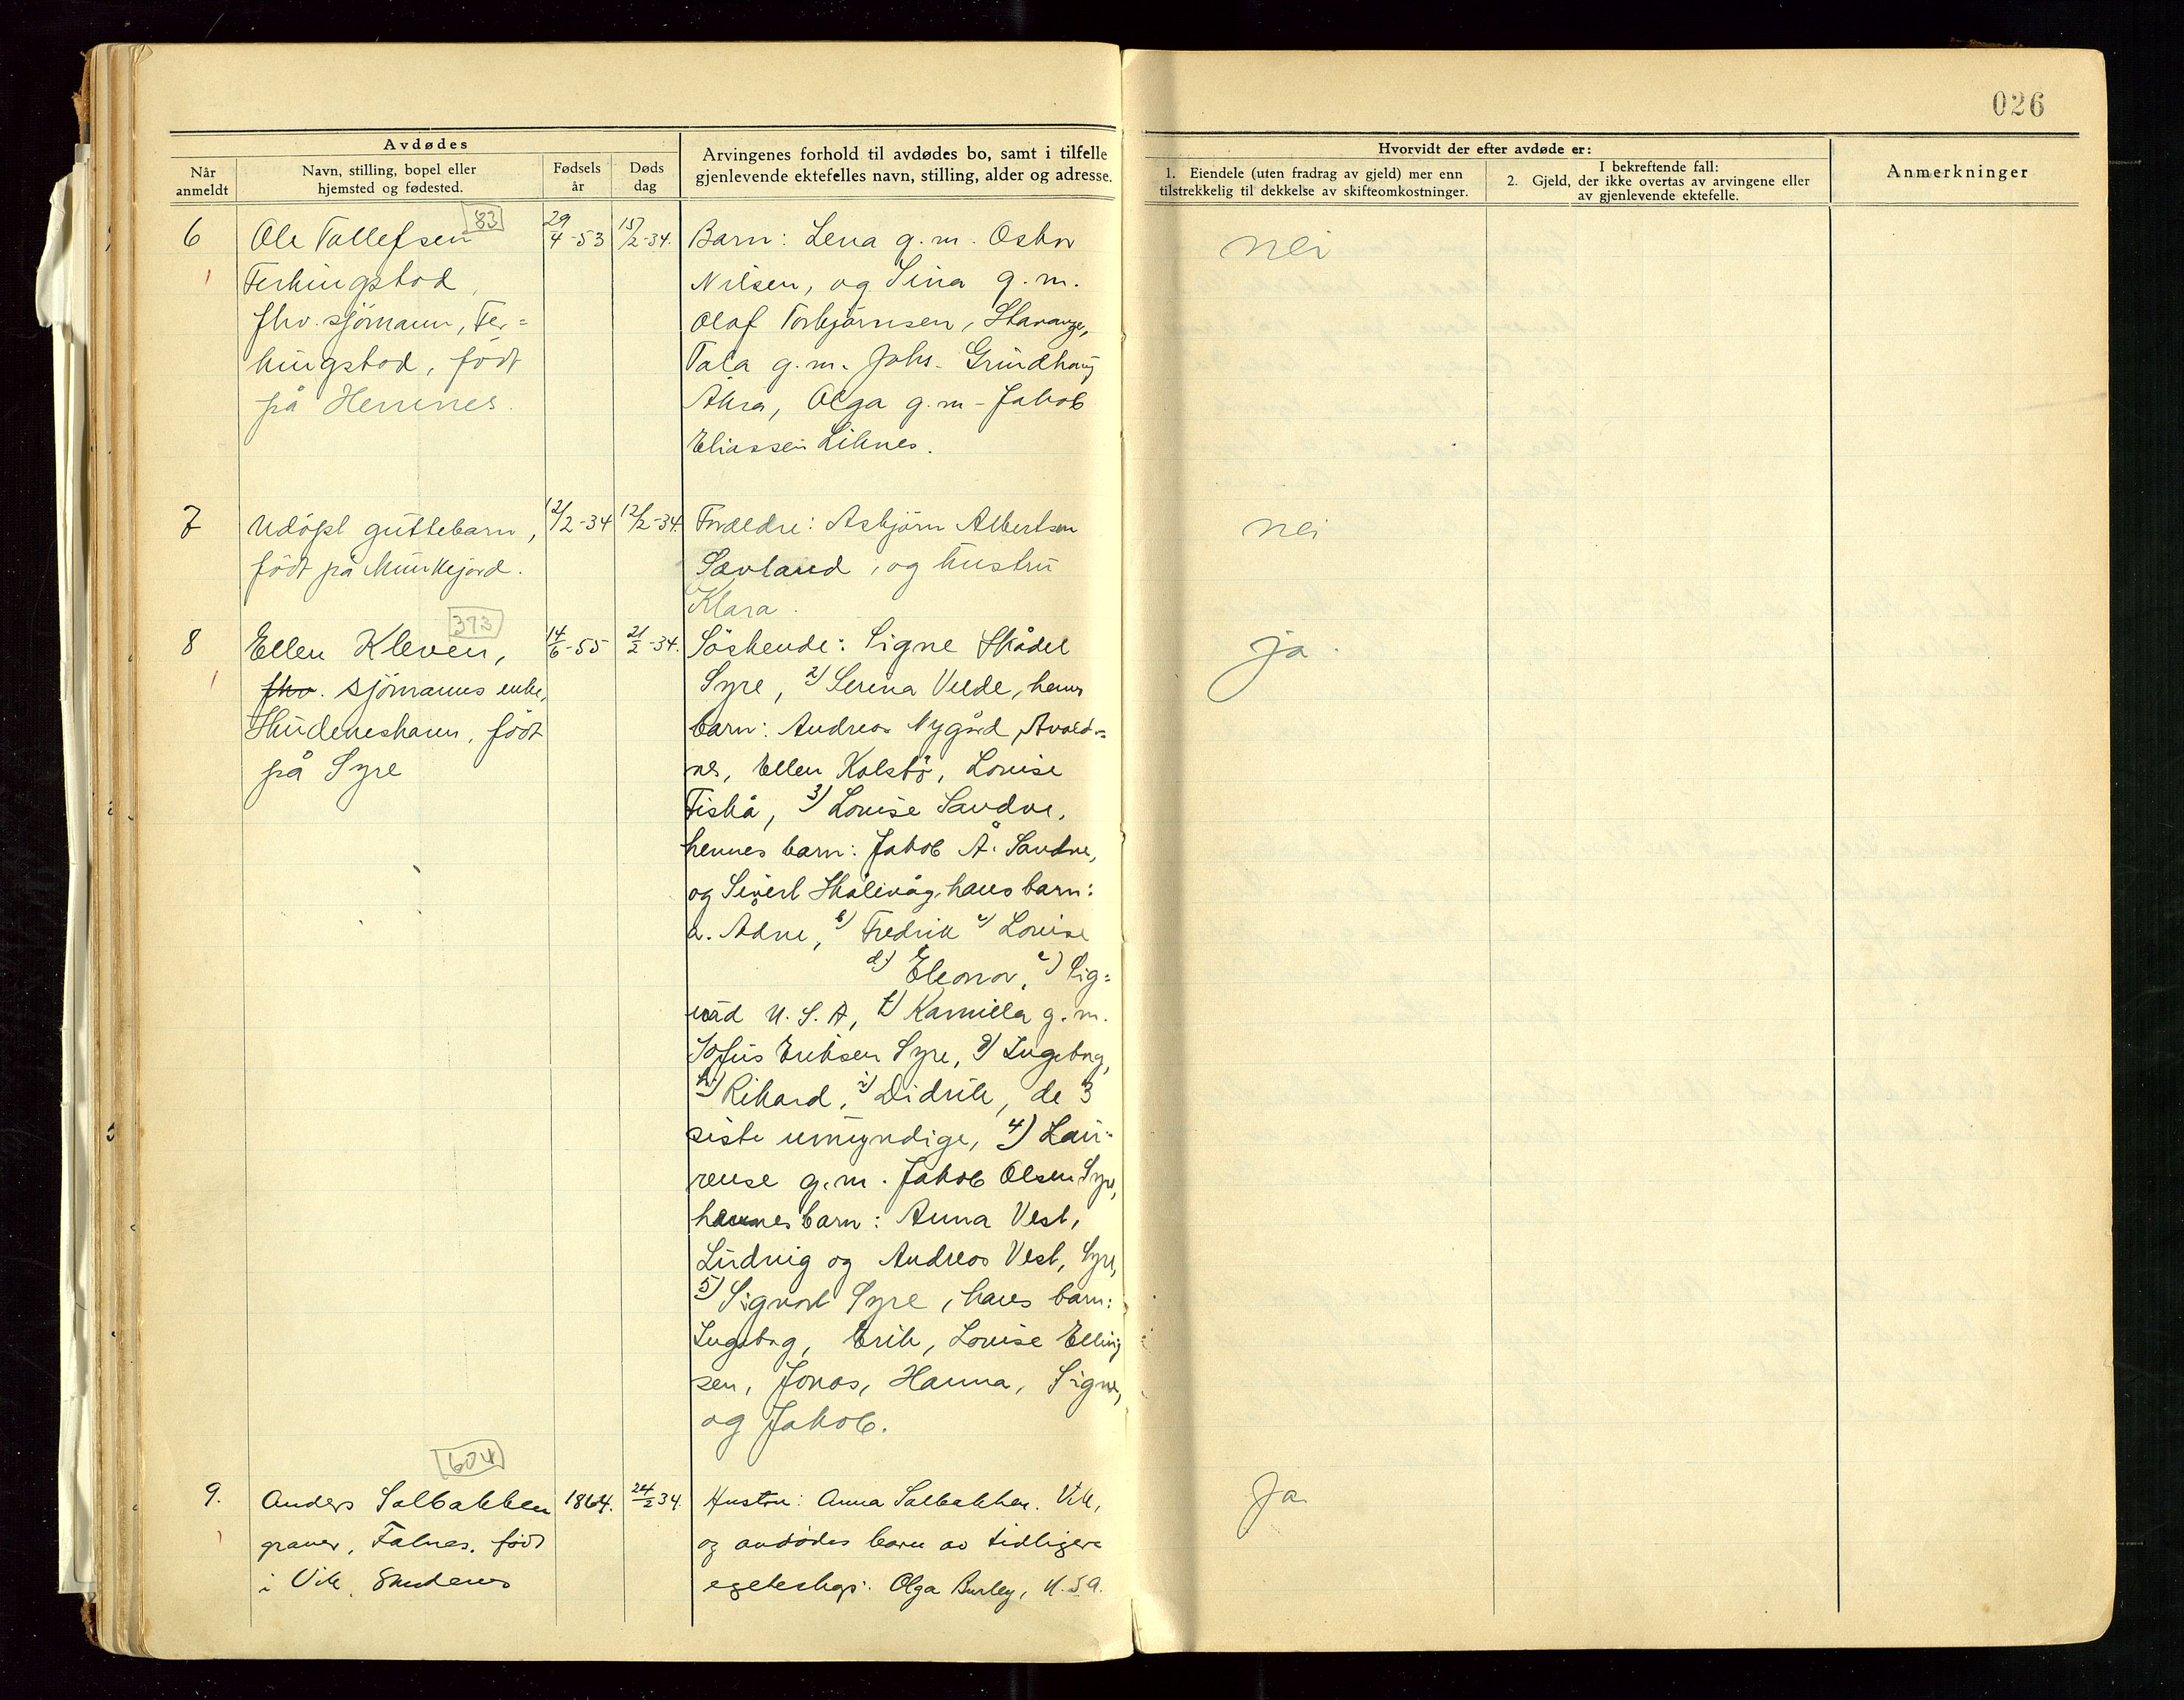 026
Avdødes
Når
anmeldt
Navn, stilling, bopel eller
hjemsted og fødested.
Fødsels
år
Døds
dag
Arvingenes forhold til avdødes bo, samt i tilfelle
gjenlevende ektefelles navn, stilling, alder og adresse.
Hvorvidt der efter avdøde er:
1. Eiendele (uten fradrag av gjeld) mer enn
tilstrekkelig til dekkelse av skifteomkostninger.
I bekreftende fall:
2. Gjeld, der ikke overtas av arvingene eller
av gjenlevende ektefelle.
Anmerkninger
83
6 Ole Tollefsen 29/4-53 15/2-34. Barn: Lena g.m. Oskar nei
Ferkingstad, Nilsen, og Sina g.m.
fhv. sjömann, Fer= Olaf Torbjørnsen, Stavanger,
kingstad, födt Tala g.m. Johs. Grindhaug
på Hemnes. Åkra, Olga g.m. Jakob
Eliassen Liknes.
7 Udöpt guttebarn, 12/2-34 12/2-34. Foreldre: Asbjörn Albertsen nei
födt på Munkejord. Sævland, og hustru
Klara.
373
8 Ellen Kleven, 14/6-55 21/2-34. Söskende: Signe Skådel ja.
fhv. sjömanns enke, Syre, 2) Serina Velde, hennes
Skudeneshavn, födt barn: Andreas Nygård, Avalds=
på Syre nes, Ellen Kolstö, Louise
Fiskå, 3) Louise Sandve,
hennes barn: Jakob Å. Sandve,
og Sivert Skålevåg, hans barn:
a. Ådne, b) Fredrik c) Louise
d) Eleonor, e) Sig=
vald U.S.A, f) Kamilla g.m.
Sofus Eriksen Syre, g) Ingeborg,
h) Rikard, i) Didrik, de 3
siste umyndige, 4) Lau=
rense g.m. Jakob Olsen Syre,
hennes barn: Anna Vest,
Ludvig og Andreas Vest, Syre,
5) Sigvart Syre, hans barn:
Ingeborg, Erik, Louise Elling
sen, Jonas, Hanna, Signe,
og Jakob.
604
9. Anders Solbakken 1864. 24/2 34. Hustru: Anna Solbakken. Vik, Ja.
graver, Falnes, födt og avdødes barn av tidligere
i Vik, Skudenes egteskap: Olga Burley, U.S.A.